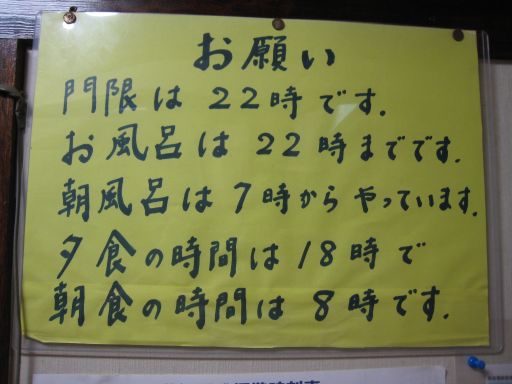 お願い
門限は 22時です.
お風呂は 22時までです.
朝風呂は 7時からやっています.
夕食の時間は 18時で
朝食の時間は 8時です.